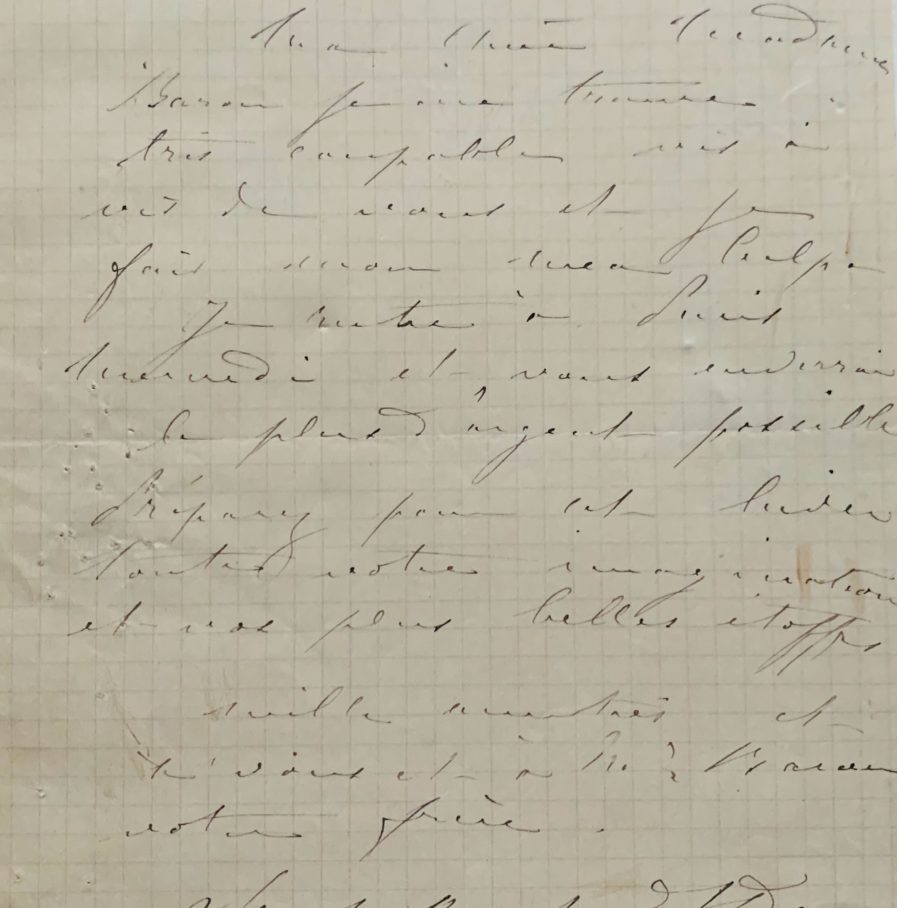 Ma chère Madame
Baron je me trouve
très coupable vis à
vis de vous et je
fais mon mea culpa
Je rentre à Paris
mercredi et vous enverrai
le plus d'argent possible
Préparez pour cet hiver
toute votre imagination
et vos plus belles étoffes
mille amitiés et
à vous et à Mr Baron
votre frère.